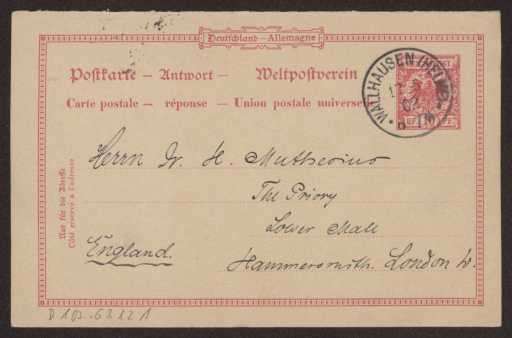 Deutschland – Allemagne
Postkarte – Antwort – Weltpostverein
Carte postale – réponse – Union postale universelle
WALLHAUSEN (HELME)
Nur für die Adresse
Côté réservé à l'adresse
Herrn Dr. H. Muthesius
The Priory
Lower Mall
England.
Hammersmith. London W.
D 102-6312 1